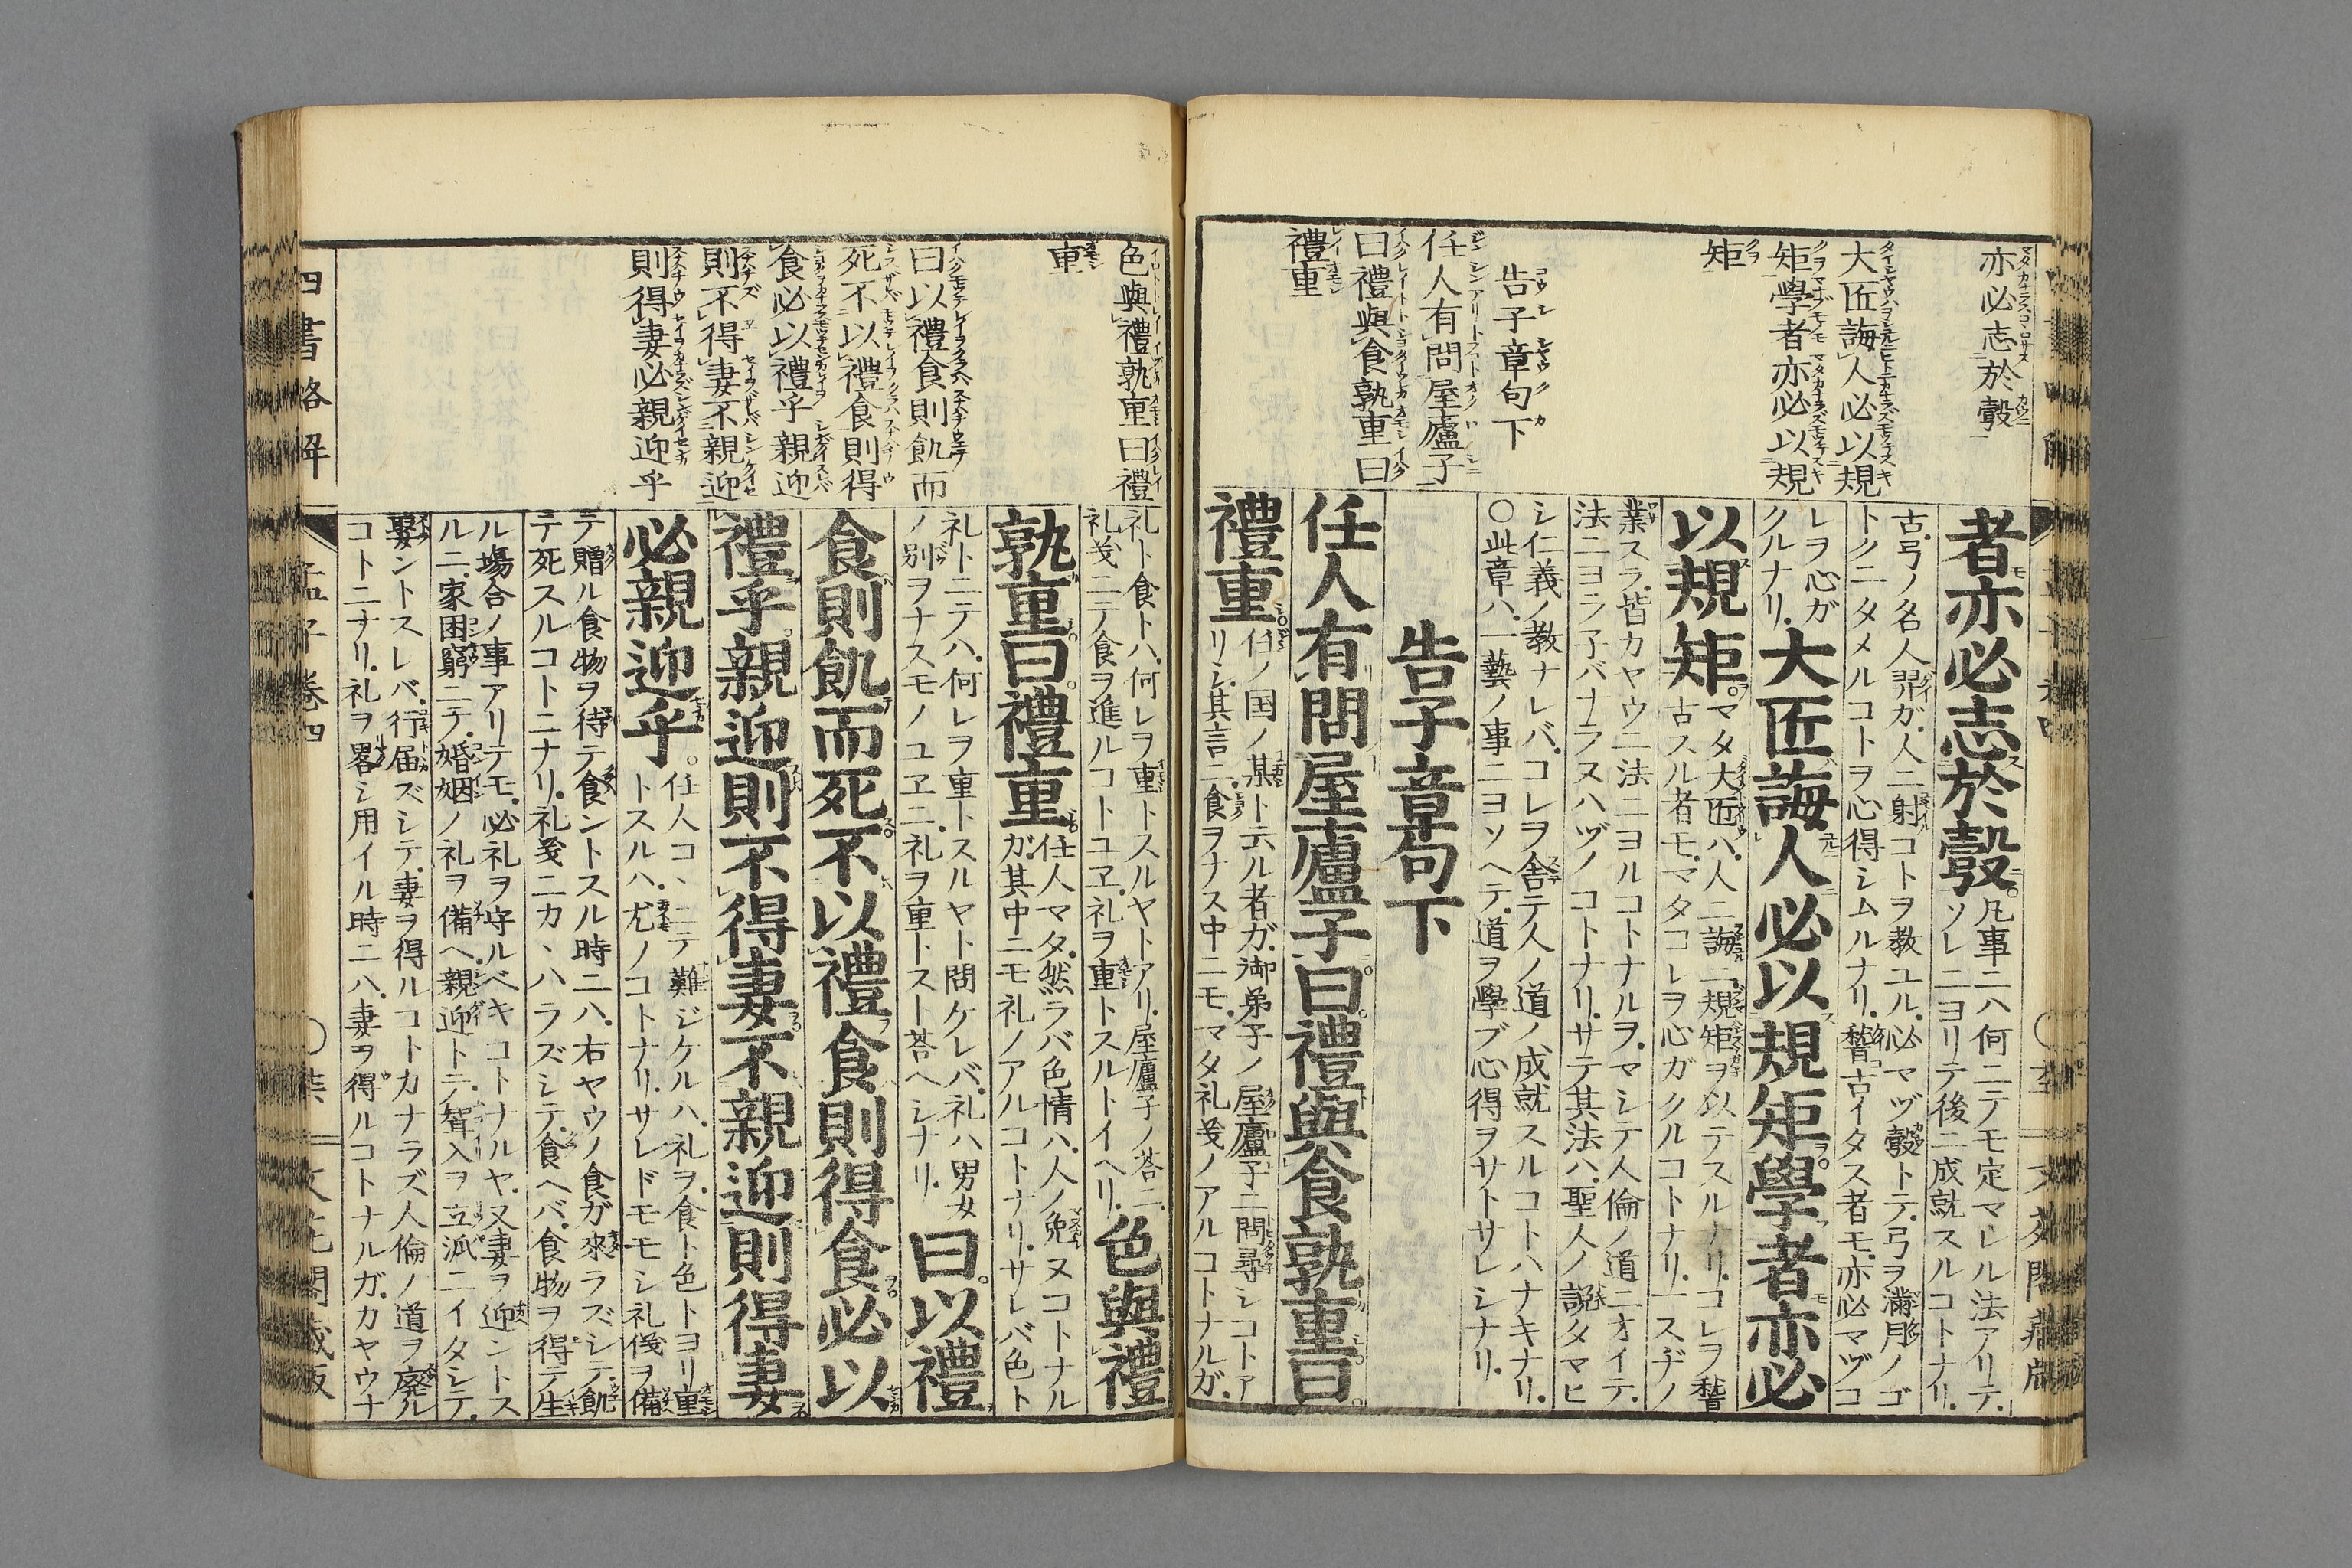 亦必志於彀
大匠誨人必以規
矩學者亦必以規
矩
告子章句下
任人有問屋廬子
曰禮與食孰重曰
禮重
者亦必志於彀
凡事ニハ何ニテモ定マレル法アリテ
ソレニヨリテ後ニ成就スルコトナリ
古弓ノ名人羿ガ人ニ射コトヲ教ユル必マヅ彀トテ弓ヲ滿月ノゴ
トクニタメルコトヲ心得シムルナリ稽古イタス者モ亦必マヅコ
レヲ心ガ
クルナリ
大匠誨人必以規矩學者亦必
以規矩
マタ大匠ハ人ニ誨ニ規矩ヲ以テスルナリコレヲ稽
古スル者モマタコレヲ心ガクルコトナリ一スヂノ
業スラ皆カヤウニ法ニヨルコトナルヲマシテ人倫ノ道ニオイテ
法ニヨラ子バナラヌハヅノコトナリサテ其法ハ聖人ノ説タマヒ
シ仁義ノ教ナレバコレヲ舎テ人ノ道ノ成就スルコトハナキナリ
○此章ハ一藝ノ事ニヨソヘテ道ヲ學ブ心得ヲサトサレシナリ
告子章句下
任人有問屋廬子曰禮與食孰重曰
禮重
任ノ国ノ某ト云ル者ガ御弟子ノ屋廬子ニ問尋シコトア
リシ其言ニ食ヲナス中ニモマタ礼義ノアルコトナルガ
色與禮孰重曰禮
重
曰以禮食則飢而
死不以禮食則得
食必以禮乎親迎
則不得妻不親迎
則得妻必親迎乎
礼ト食トハ何レヲ重トスルヤトアリ屋廬子ノ荅ニ
礼義ニテ食ヲ進ルコトユヱ礼ヲ重トスルトイヘリ
色與禮
孰重曰禮重
任人マタ然ラバ色情ハ人ノ免ヌコトナル
ガ其中ニモ礼ノアルコトナリサレバ色ト
礼トニテハ何レヲ重トスルヤト問ケレバ礼ハ男女
ノ別ヲナスモノユヱニ礼ヲ重トスト荅ヘシナリ
曰以禮
食則飢而死不以禮食則得食必以
禮乎親迎則不得妻不親迎則得妻
必親迎乎
任人コヽニテ難ジケルハ礼ヲ食ト色トヨリ重
トスルハ尤ノコトナリサレドモモシ礼儀ヲ備
テ贈ル食物ヲ待テ食ントスル時ニハ右ヤウノ食ガ來ラズシテ飢
テ死スルコトニナリ礼義ニカヽハラズシテ食ヘバ食物ヲ得テ生
ル塲合ノ事アリテモ必礼ヲ守ルベキコトナルヤ又妻ヲ迎ントス
ルニ家困窮ニテ婚姻ノ礼ヲ備ヘ親迎トテ聟入ヲ立派ニイタシテ
娶ントスレバ行届ズシテ妻ヲ得ルコトカナラズ人倫ノ道ヲ廢ル
コトニナリ礼ヲ畧シ用イル時ニハ妻ヲ得ルコトナルガカヤウナ
四書略解
孟子卷四
文苑閣蔵版